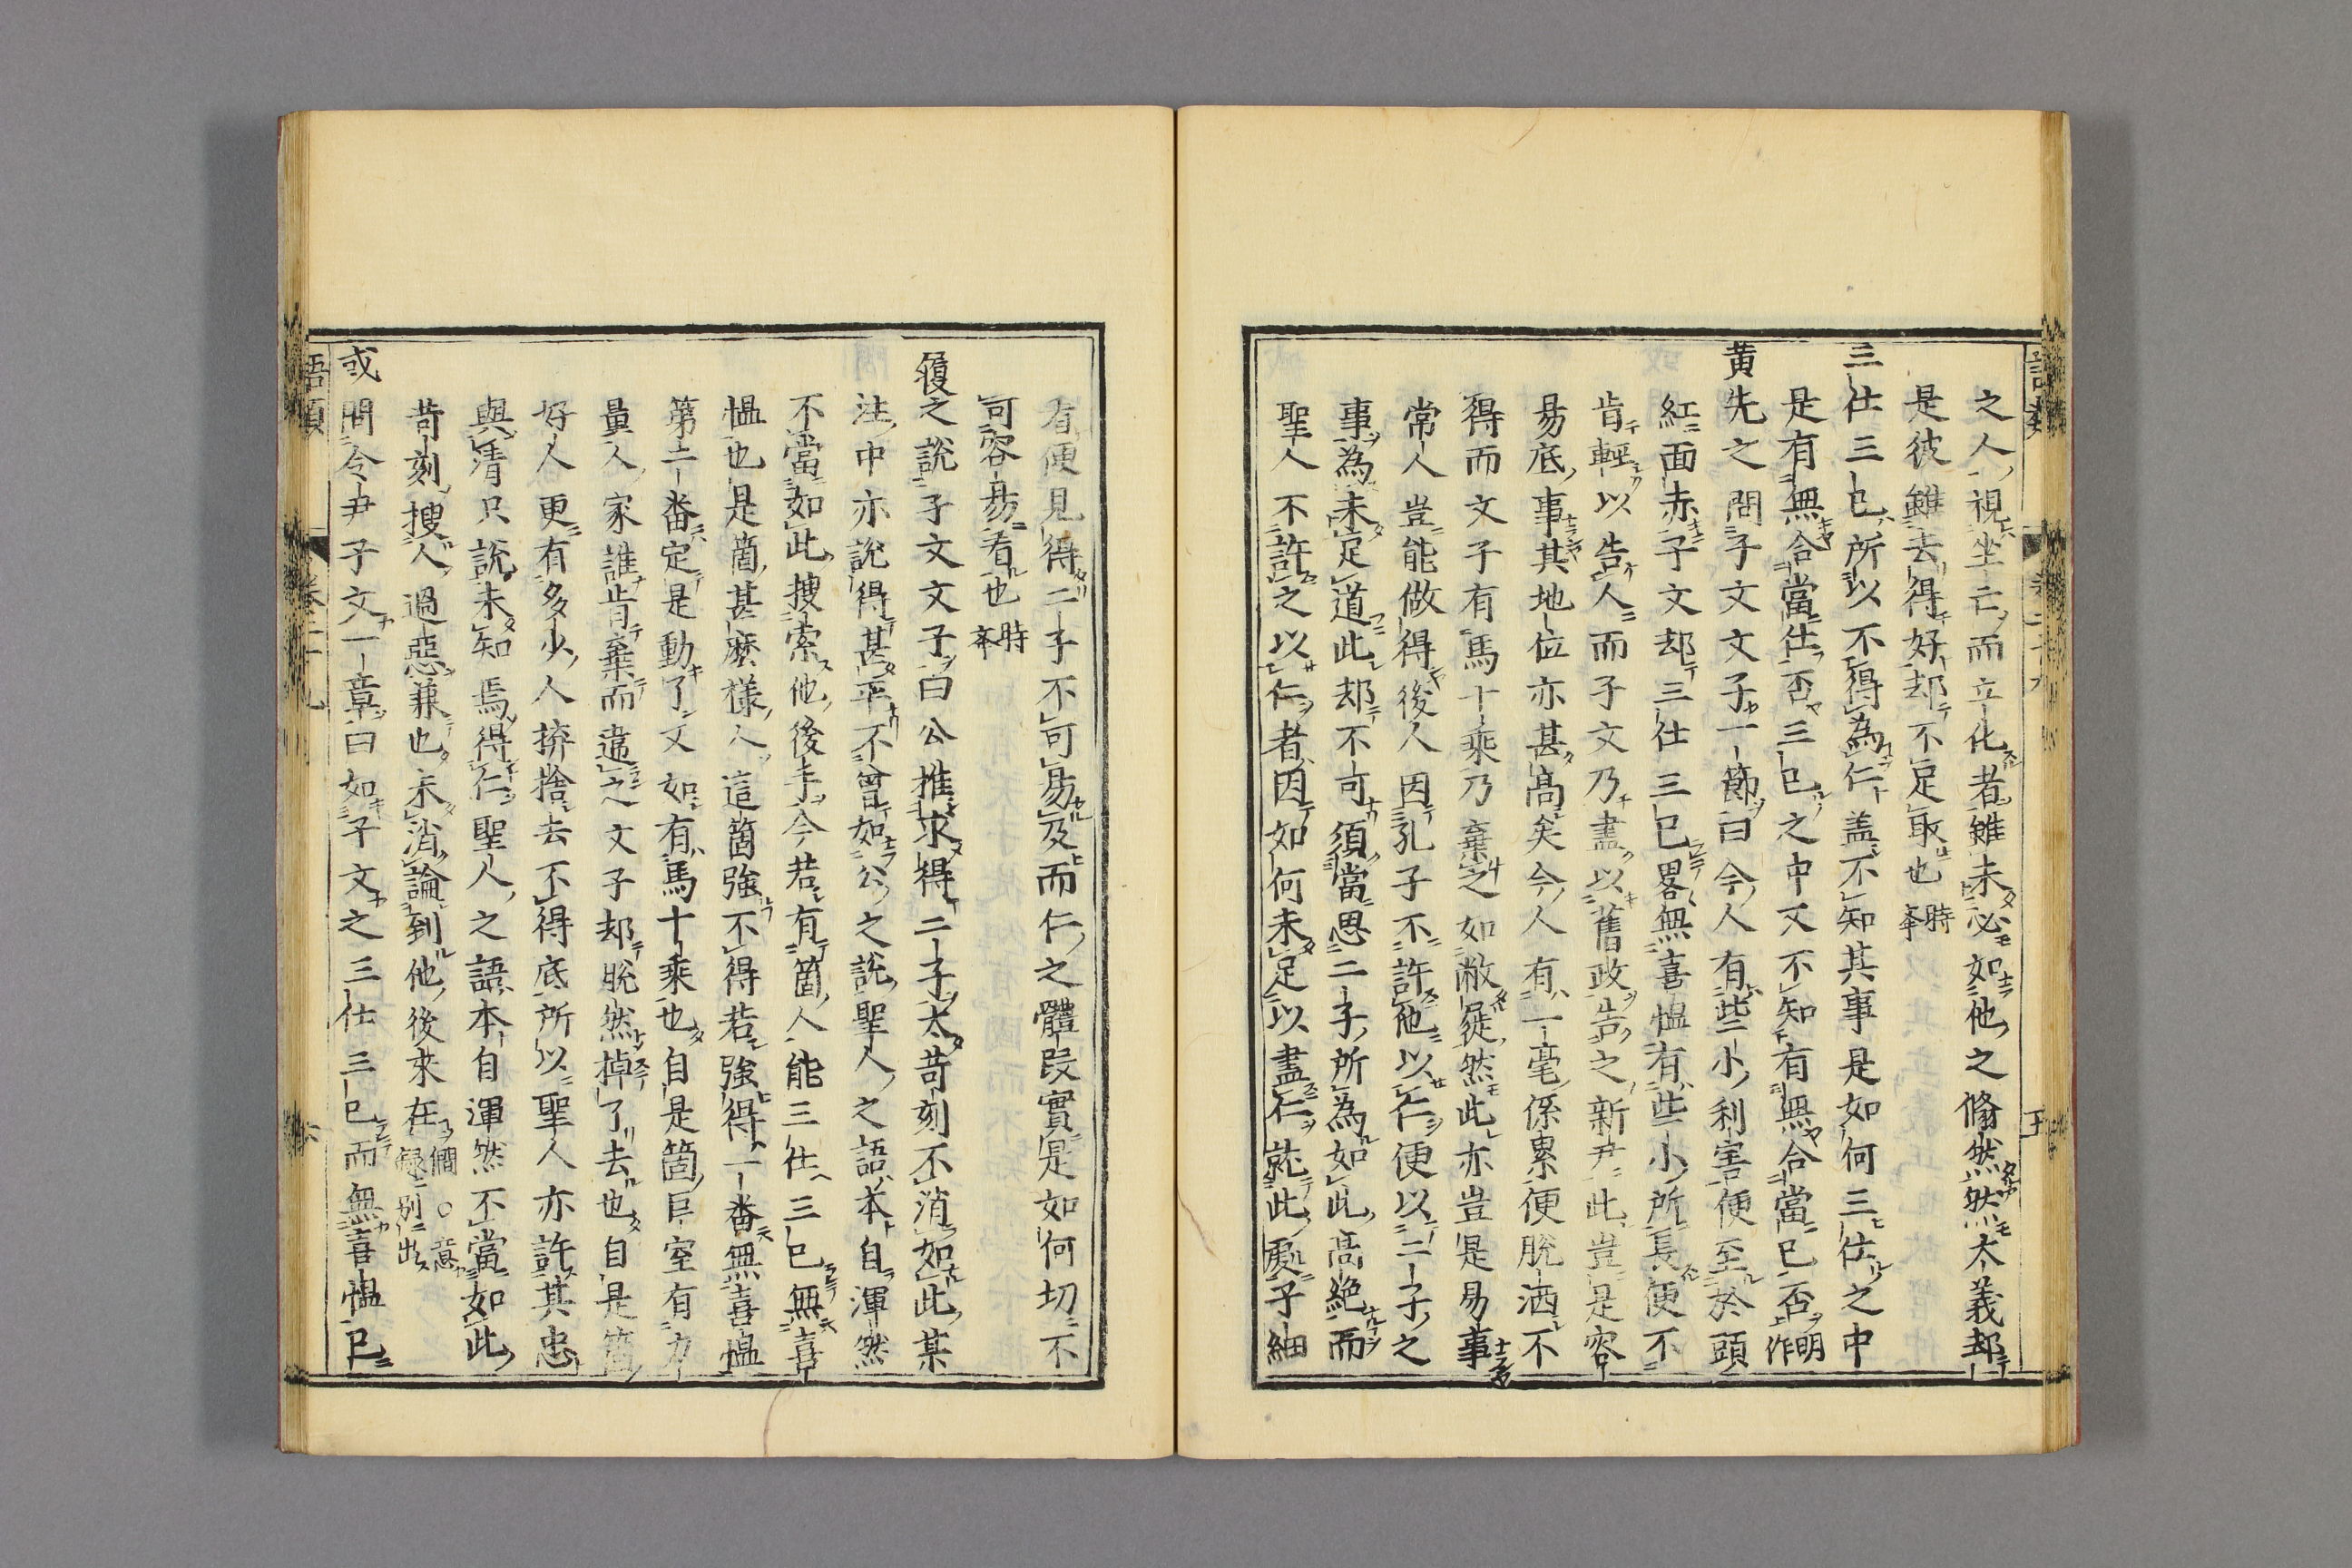 之人視坐亡而立化者雖未必如他之翛然然大義却
是彼雖去得好却不足取也時擧
三仕三已所以不得為仁盖不知其事是如何三仕之中
是有無合當仕否三已之中又不知有無合當已否明作
黄先之問子文文子一節曰今人有些小利害便至於頭
紅面赤子文却三仕三已畧無喜愠有些小所長便不
肯輕以告人而子文乃盡以舊政告之新尹此豈是容
易底事其地位亦甚高矣今人有一毫係累便脫洒不
得而文子有馬十乘乃棄之如敝屣然此亦豈是易事
常人豈能做得後人因孔子不許他以仁便以二子之
事為未足道此却不可須當思二子所為如此高絶而
聖人不許之以仁者因如何未足以盡仁就此處子細
有便見得二子不可易及而仁之體段實是如何切不
可容易看也時擧
履之說子文文子曰公推求得二子太苛刻不消如此某
注中亦說得甚平不曾如公之說聖人之語本自渾然
不當如此搜索他後手今若有箇人能三仕三已無喜
愠也是箇甚麽樣人這箇強不得若強得一番無喜愠
第二番定是動了又如有馬十乘也自是箇巨室有力
量人家誰肯棄而違之文子却脫然掉了去也自是箇
好人更有多少人擠捨去不得底所以聖人亦許其忠
與清只說未知焉得仁聖人之語本自渾然不當如此
苛刻搜人過惡兼也未消論到他後來在僩○蓋卿録別出
或問令尹子文一章曰如子文之三仕三已而無喜愠已